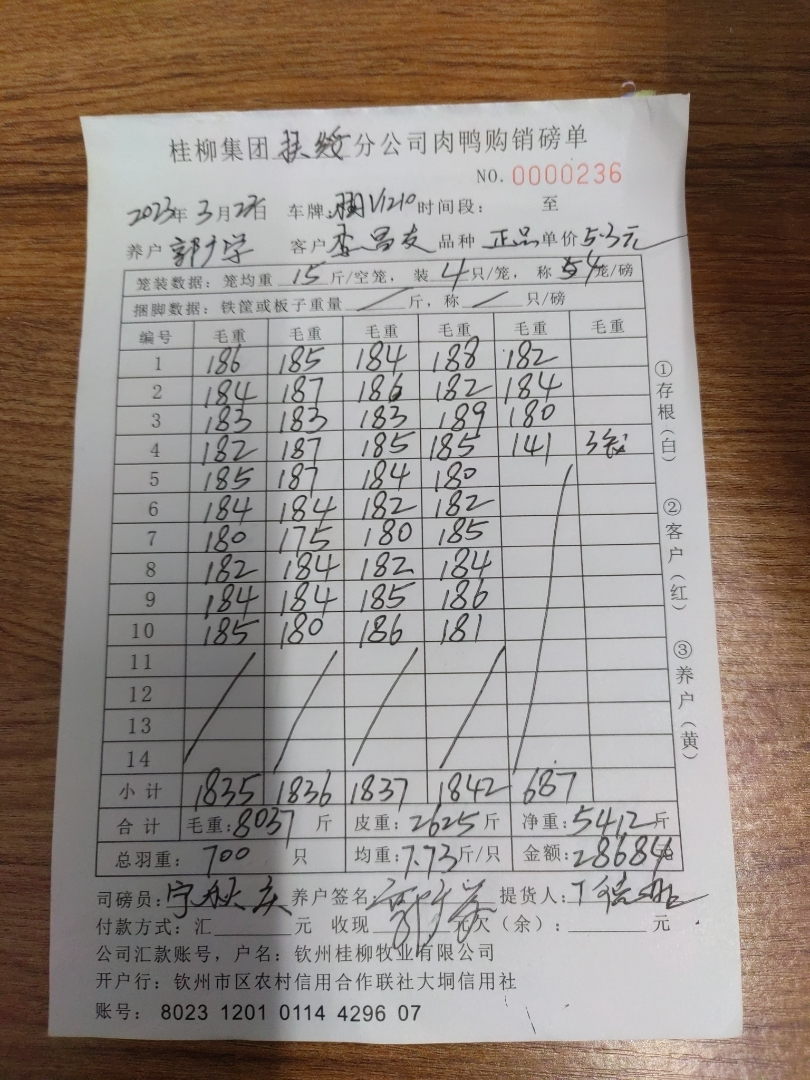 桂柳集团扶绥分公司肉鸭购销磅单
NO. 0000236
2023年3月27日 车牌:湘V1210 时间段: 至
养户 郭学 客户 李昌友 品种 正品 单价 5.3元
笼装数据: 笼均重 15 斤/空笼, 装 4 只/笼, 称 4 笼/磅
捆脚数据: 铁筐或板子重量 / 斤, 称 / 只/磅
编号 毛重 毛重 毛重 毛重 毛重 毛重
1 186 185 184 188 182
2 184 187 186 182 184
3 183 183 183 189 180
4 182 187 185 185 141 3笼
5 185 187 184 180
6 184 184 182 182
7 180 175 180 185
8 182 184 182 184
9 184 184 185 186
10 185 180 186 181
11
12
13
14
小计 1835 1836 1837 1842 687
合计 毛重: 8037 斤 皮重: 2625 斤 净重: 5412 斤
总羽重: 700 只 均重: 7.73 斤/只 金额: 28684 元
司磅员: 养户签名 提货人:
付款方式: 汇 元 收现 元欠(余): 元
公司汇款账号, 户名: 钦州桂柳牧业有限公司
开户行: 钦州市区农村信用合作联社大垌信用社
账号: 8023 1201 0114 4296 07
①存根(白)
②客户(红)
③养户(黄)